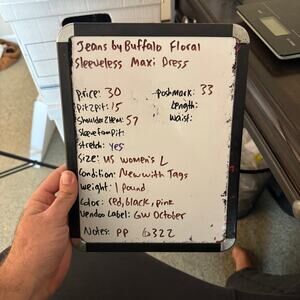 Jeans by Buffalo Floral
Sleeveless Maxi Dress
Price: 30
Poshmark: 33
Pit2pit: 15
Length:
Shoulder2Hem: 57
Waist:
Sleeve from pit:
Stretch: Yes
Size: US Women's L
Condition: New with Tags
Weight: 1 Pound
Color: red, black, pink
Vendoo Label: GW October
Notes: PP 6322